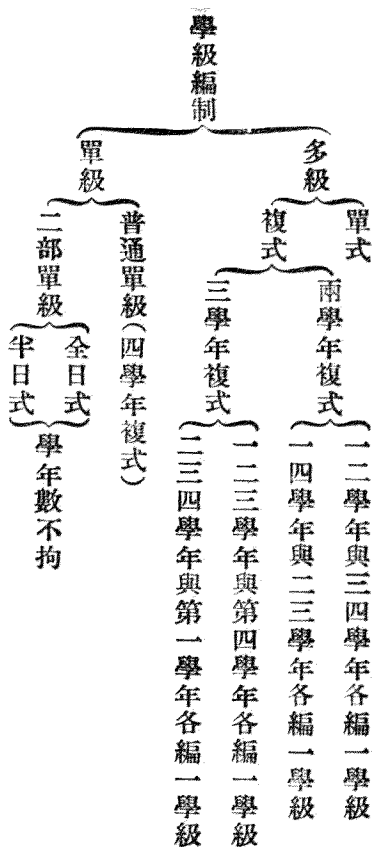 學級編制
多級
單式
複式
兩學年複式
一二學年與三四學年各編一學級
一四學年與二三學年各編一學級
三學年複式
一二三學年與第四學年各編一學級
二三四學年與第一學年各編一學級
單級
普通單級(四學年複式)
二部單級
全日式
半日式
學年數不拘